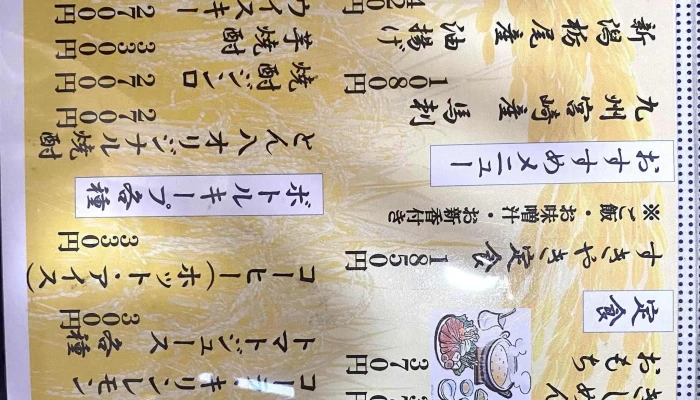 きしめん
おもち 370円
定食
すきやき定食 1850円
※ご飯・お味噌汁・お新香付き
おすすめメニュー
九州宮崎産 馬刺 1080円
新潟栃尾産 油揚げ 420円
コーラ・キリンレモン
トマトジュース各種 300円
コーヒー(ホット・アイス) 330円
ボトルキープ各種
とん八オリジナル焼酎 2700円
焼酎ジンロ 2700円
芋焼酎 3300円
ウイスキー 2700円